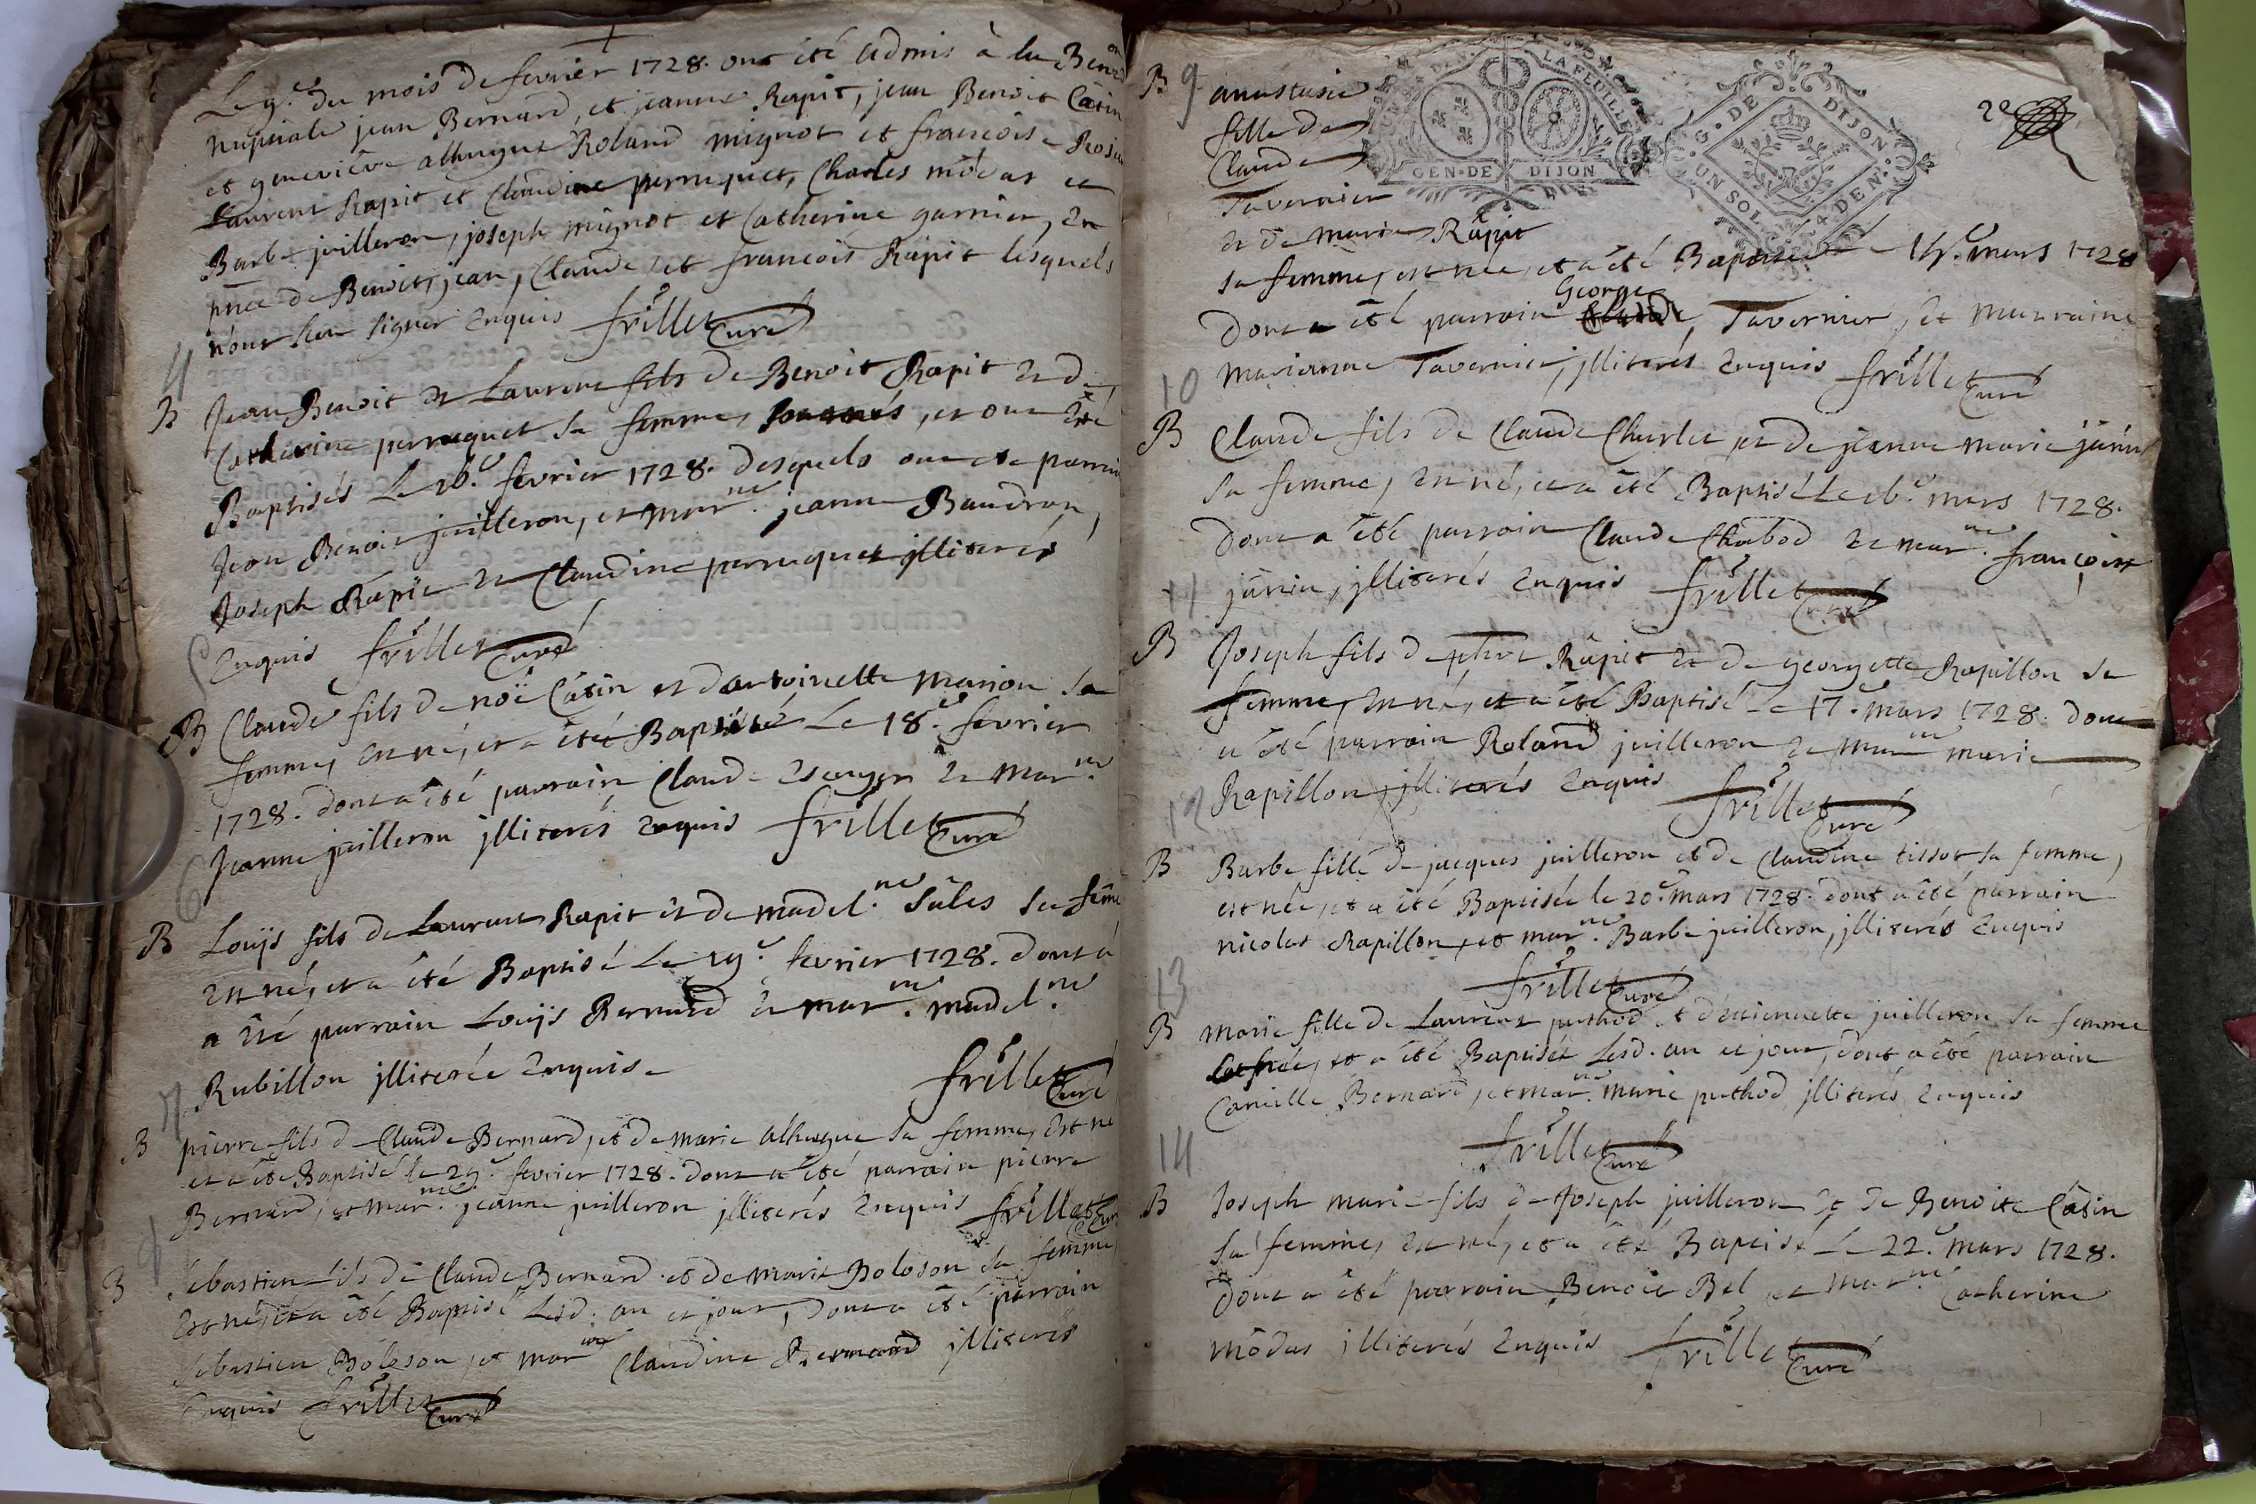 Le 9.e du mois de fevrier 1728. ont été admis à la Bened.on
nuptiale jean Bernard, et jeanne Rapit, jean Benoit Câtin
et genevieve alhugue Roland mignot et francoise
Laurent Rapit et Claudine perruquet, Charles môdas et
Barbe juilleron, joseph mignot et Catherine garnier, en
pnce de Benoit, jean, Claude, et francois Rapit lesquels
n'ont sceu signer enquis frillet Curé
4
B Jean Benoit et Laurent fils de Benoit Rapit et de
Catherine perruquet sa femme, sont nés, et ont été
Baptisés Le 16.e fevrier 1728. desquels ont été parrain
Jean Benoit juilleron, et mar.ne jeanne Baudran,
Joseph Rapit et Claudine perruquet illiterés
enquis frillet Curé
B Claude fils de noë Câtin et d'antoinette manion sa
femme, est né, et a été Baptisé Le 18.e fevrier
1728. dont a été parrain Claude et mar.ne
Jeanne juilleron jlliterés enquis frillet Curé
6
B Louïs fils de Laurent Rapit et de madel.ne Sâles sa fême
est né, et a été Baptisé Le 19.e fevrier 1728. dont a
a été parrain Louïs Bernard et mar.ne madel.ne
Rubillon jlliterée enquise
frillet Curé
7
B pierre fils de Claude Bernard, et de marie alhugue sa femme, est né
et a été Baptisé le 29.e fevrier 1728. dont a été parrain pierre
Bernard, et mar.ne jeanne juilleron jlliterés enquis frillet Curé
8
B Sebastien fils de Claude Bernard et de marie Boloson sa femme,
est né, et a été Baptisé Lesd. an et jour, dont a été parrain
Sebastien Boloson, et mar.ne Claudine Bernard jlliterés
enquis frillet Curé
22
GEN. DE DIJON
LA FEUILLE
G. DE DIJON
UN SOL 4 DEN.
9
B anastasie
fille de
Claude
Tavernier
et de marie Rapit
sa femme, est née, et a été Baptisée le 14.e mars 1728
George
dont a été parrain Claude, Tavernier, et marraine
marianne Tavernier, jlliterés enquis frillet Curé
10
B Claude fils de Claude Charlet, et de jeanne marie jânin
sa femme, est né, et a été Baptisé Le 16.e mars 1728.
dont a été parrain Claude Chabod et mar.ne françoise
jânin, jlliterés enquis frillet Curé
11
B Joseph fils de phive Rapit et de georgette Rapillon sa
femme, est né, et a été Baptisé le 17.e mars 1728. dont
a été parrain Roland juilleron et mar.ne marie
Rapillon, jlliterés enquis frillet Curé
12
B Barbe fille de jacques juilleron et de Claudine tissot sa femme,
est née, et a été Baptisée le 20.e mars 1728. dont a été parrain
nicolas Rapillon, et mar.ne Barbe juilleron, jlliterés enquis
frillet Curé
13
B marie fille de Laurent puthod, et d'étiennette juilleron sa femme
est née, et a été Baptisée Lesd. an et jour, dont a été parrain
Camille Bernard, et mar.ne marie puthod, jlliterés enquis
frillet Curé
14
B Joseph marie fils de Joseph juilleron et de Benoite Câtin
sa femme, est né, et a été Baptisé Le 22.e mars 1728.
dont a été parrain Benoit Bel et mar.ne Catherine
môdas jlliterés enquis frillet Curé